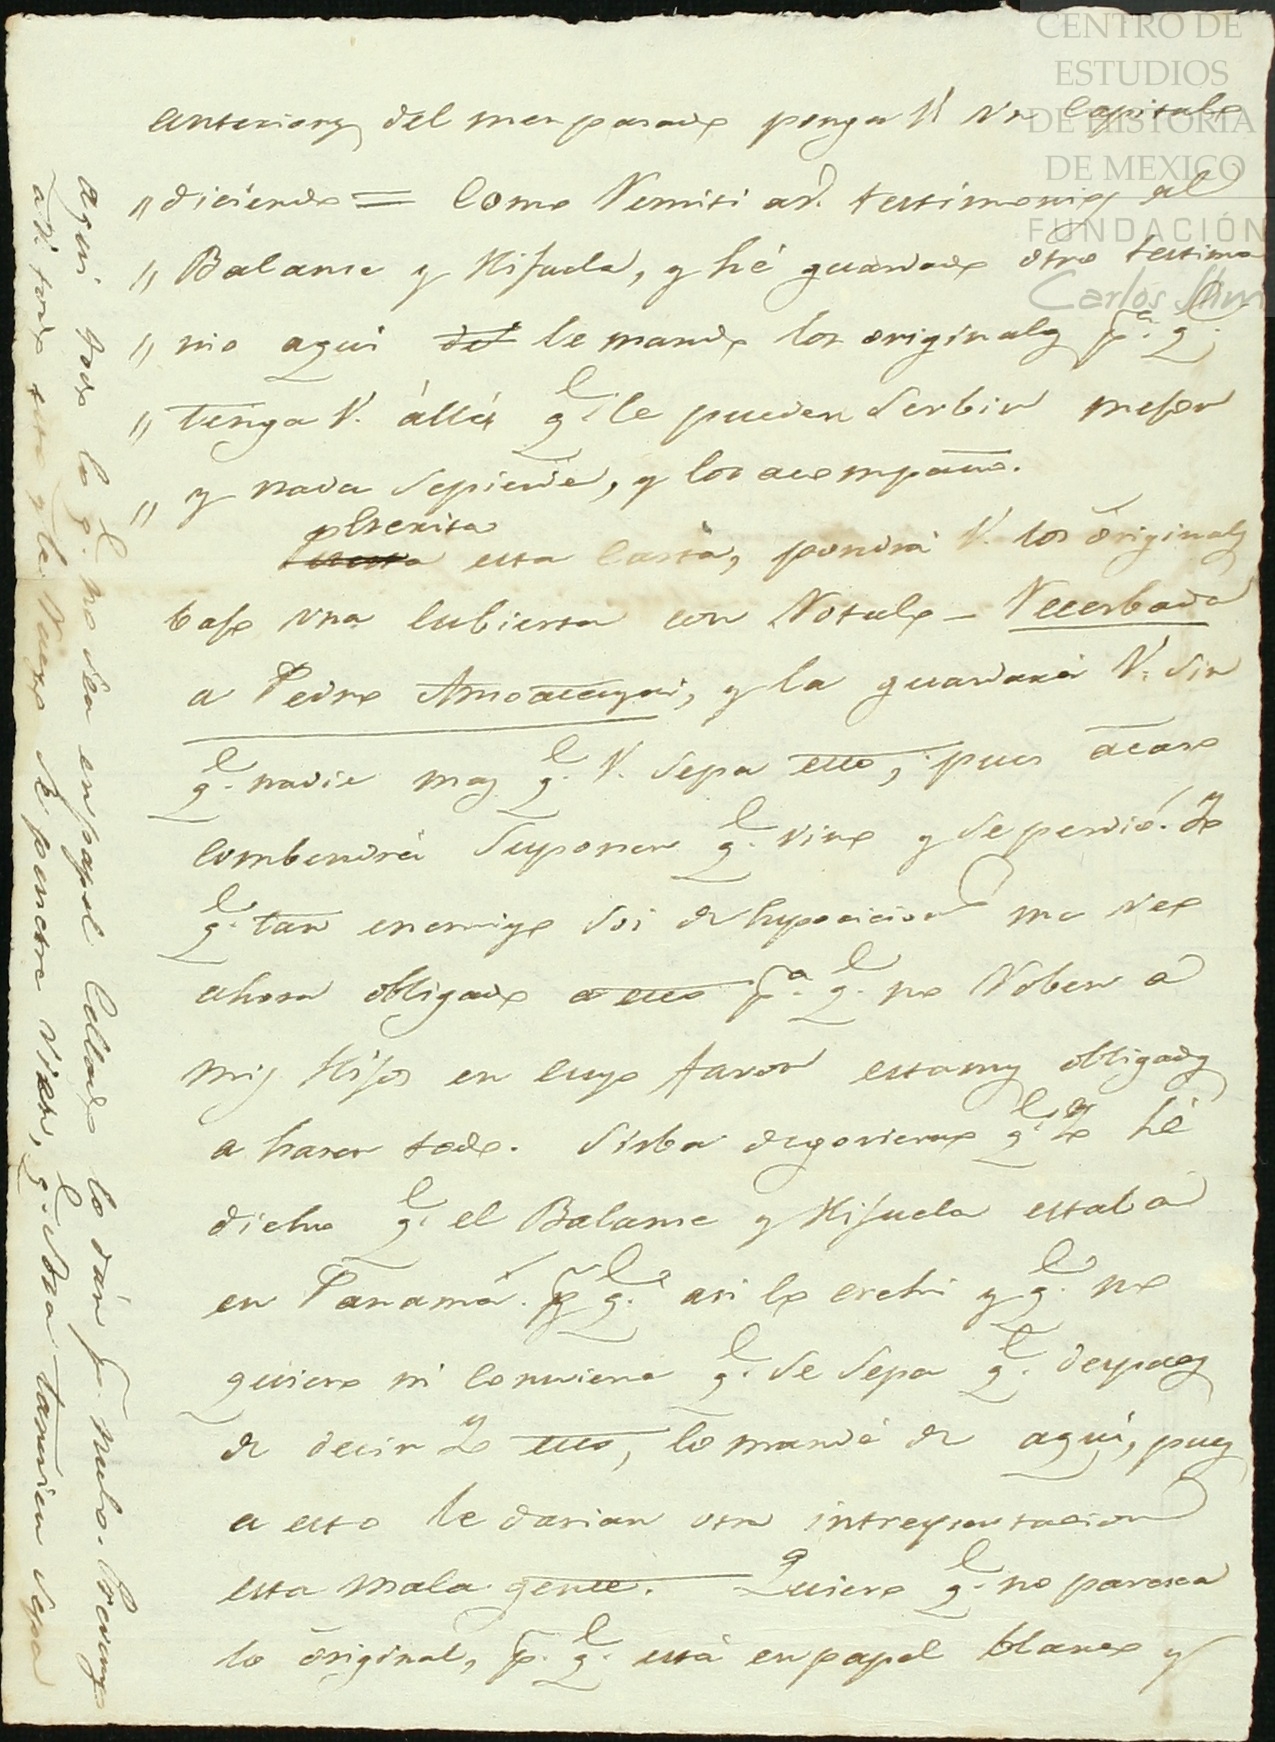 CENTRO DE
ESTUDIOS
DE HISTORIA
DE MEXICO
FUNDACIÓN
Carlos Slim
anteriores del mes pasado ponga V. un Capitulo
" diciendo = Como Remiti a V. testimonio al
" Balance y Hijuela, y hé guardado otro testimo
" nio aquí le mando los originales p.a q.e
" tenga V. állá q.e le pueden Serbir mejor
" y nada Sepierde, y los acompaño.
Escrita
esta Carta, pondrá V. los originales
bajo una Cubierta con Rotulo - Recerbada
a Pedro Amoategui, y la guardará V. Sin
q.e nadie mas q.e V. Sepa esto, pues acaso
combendrá Suponer q.e vino y Se perdió. Yo
q.e tan enemigo Soi de Suposicion me veo
ahora obligado a esto p.a q.e no Roben a
mis Hijos en cuyo favor estamos obligados
a haser todo. Sirba degovierno q.e Yo hé
dicho q.e el Balance y Hijuela estaba
en Panamá. p.r q.e asi lo crehi y q.e no
quiero ni Conviene q.e Se Sepa q.e despues
de decir Yo esto, lo mandé de aquí, pues
a esto le darian otra intrepretacion
esta mala gente. Quiero q.e no paresca
lo original, p.r q.e está en papel blanco y
aqui todo lo q.e no Sea en papel Cellado lo dán p.r nulo. Prevengo
a V. todo esto y le Ruego Se penetre vien, q.e Sea tamvien Sepa